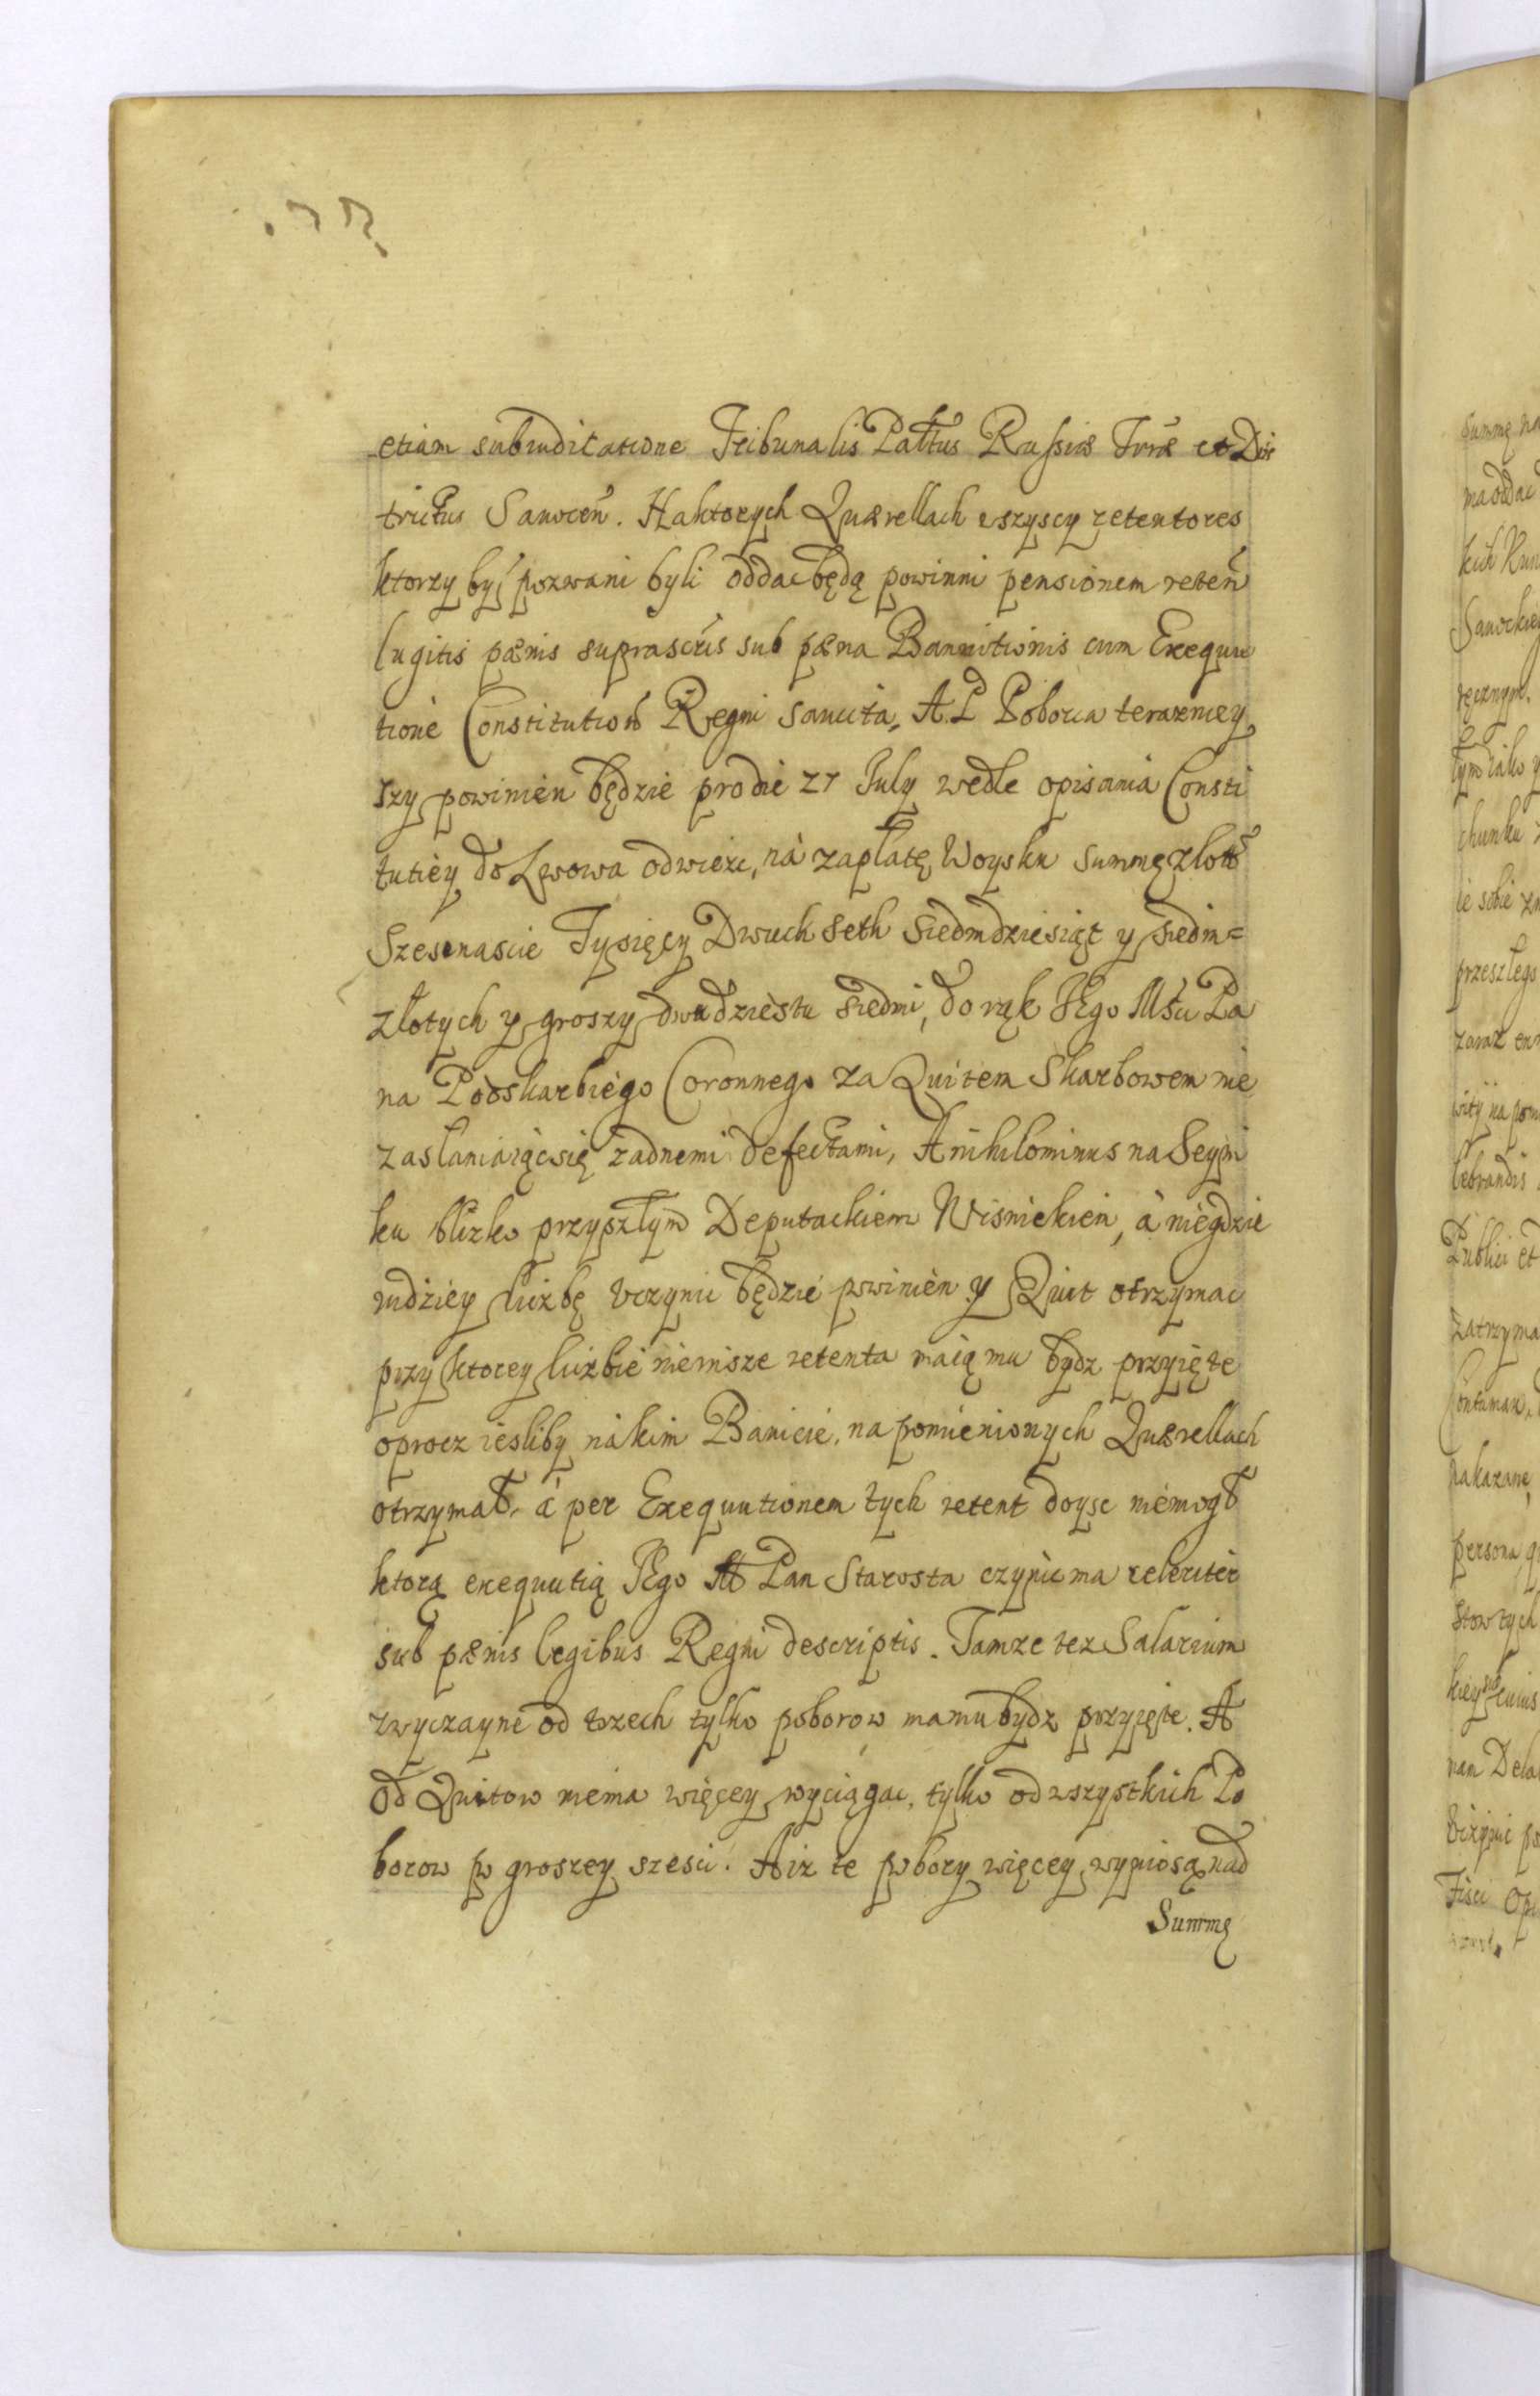 etiam subiudicatione Tribunalis Paltus Russiæ Trræ et Dis
trictus Sanocen. Na ktorych Quærellach wszyscy retentores
ktorzy by pozwani byli oddac będą powinni pensionem reten
lugitis pænis suprascris sub pæna Bannitionis cum Exequu
tione Constitution Regni sancita, A P Poborca terazniey
szy powinien będzie pro die 27 July wedle opisania Consti
tutiey do Lwowa odwiezc, na zapłatę Woysku summę złott
Szesnascie Tysięcy Dwuch seth siedmdziesiąt y siedm=
złotych y groszy dwudziestu siedmi, do rąk IEgo Msci Pa
na Podskarbiego Coronnego za Quitem Skarbowem nie
zasłaniaiąc się zadnemi defectami, A nihilominus na Seymi
ku blizko przyszłym Deputackiem Wisnickien, a niegdzie
indziey liczbę vczynic będzie powinien y Quit otrzymac
przy ktorey liczbie nieinsze retenta maią mu bydz przyięte
oprocz iesliby na kim Banicie, na pomienionych Quærellach
otrzymał, a per Exequutionem tych retent doysc niemogł
ktorą exequutią IEgo M Pan Starosta czynic ma celeriter
sub pænis legibus Regni descriptis. Tamze tez Salarium
zwyczayne od trzech tylko poborow ma mu bydz przyięte. A
od Quitow niema więcey wyciągac, tylko od wszystkich Po
borow po groszey szesci. A iz te pobory więcey wyniosą nad
Summę